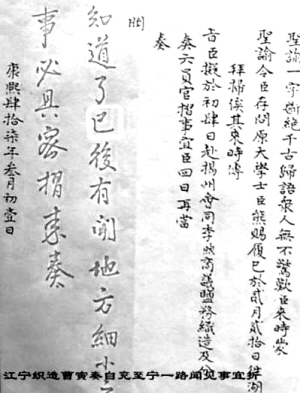 聖諭一字御絕千古歸語衆人無不驚歎臣來時蒙
聖諭令臣存問原大學士臣熊賜履已於貳月貳拾日湖
拜掃俟其來時傳
旨臣擬於初肆日赴揚州會同李煦商議鹽務織造及
奏六員官摺事宜臣回日再當
奏
知道了已後有聞地方細小
事必具密摺來奏
康熙肆拾柒年叁月初壹日
江宁织造曹寅奏自兖至宁一路闻见事宜折